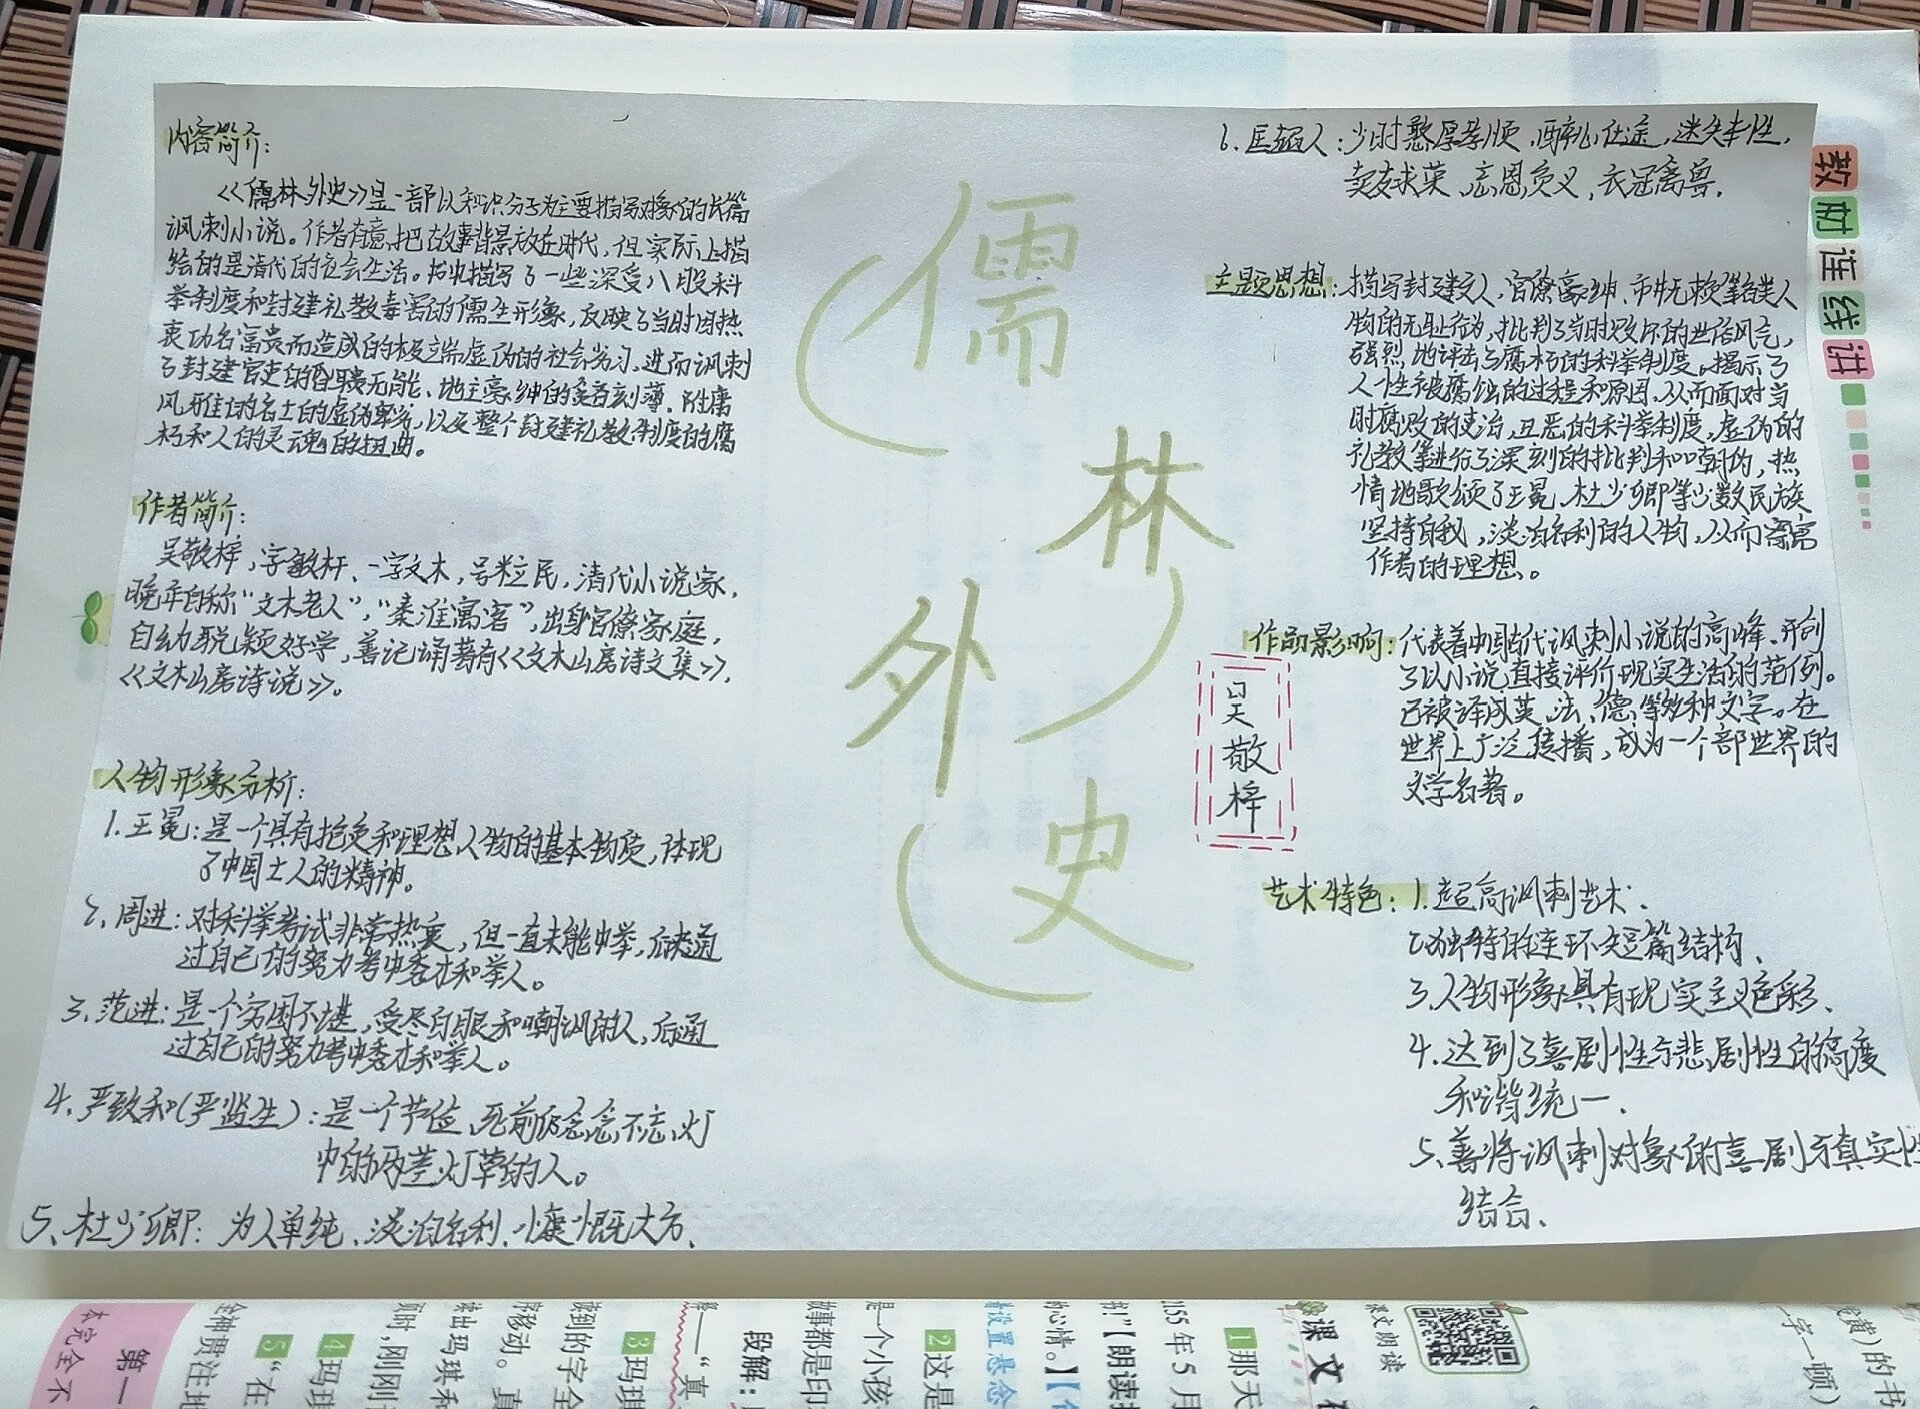 内容简介:
<<儒林外史>>是一部以知识分子为主要描写对象的长篇
讽刺小说。作者有意把故事背景放在时代,但实际上描
绘的是清代的社会生活。书中描写了一些深受八股科
举制度和封建礼教毒害的儒生形象,反映了当时因热
衷功名富贵而造成的极端虚伪的社会劣习,进而讽刺
了封建官吏的昏聩无能、地主豪绅的贪吝刻薄、附庸
风雅的名士的虚伪卑劣,以及整个封建礼教制度的腐
朽和人的灵魂的扭曲。
作者简介:
吴敬梓,字敏杆、一字文木,号粒民,清代小说家,
晚年自称“文木老人”,“秦淮寓客”,出身官僚家庭,
自幼聪颖好学,善记诵著有<<文木山房诗文集>>,
<<文木山房诗说>>。
人物形象分析:
1.王冕:是一个具有抱负和理想人物的基本物质,体现
了中国士人的精神。
2.周进:对科举考试非常热衷,但一直未能中举,后来通
过自己的努力考中秀才和举人。
3.范进:是一个穷困不堪,受尽白眼和嘲讽的人,后通
过自己的努力考中秀才和举人。
4.严致和(严监生):是一个节俭、死前仍念念不忘灯
中的两茎灯草的人。
5、杜少卿:为人单纯、淡泊名利、慷慨大方、
儒
林
外
史
6.匡超人:少时憨厚孝顺,醉心仕途,迷失本性,
卖友求荣、忘恩负义,衣冠禽兽.
主题思想:描写封建文人,官僚豪绅、市井无赖等各类人
物的无耻行为,批判了当时败坏的世俗风气,
强烈地评击了腐朽的科举制度。揭示了
人性被腐蚀的过程和原因,从而面对当
时腐败的吏治,丑恶的科举制度,虚伪的
礼教等进行了深刻的批判和嘲伪,热
情地歌颂了王冕、杜少卿等少数民族
坚持自我,淡泊名利的人物,从而寄寓
作者的理想。
作品影响:代表着中国古代讽刺小说的高峰、开创
了以小说直接评价现实生活的范例。
已被译成英、法、德等数种文字。在
世界上广泛传播,成为一个部世界的
文学名著。
吴
敬
梓
艺术特色:1.超高讽刺艺术.
2.独特的连环短篇结构、
3.人物形象具有现实主义色彩、
4.达到了喜剧性与悲剧性的高度
和谐统一.
5、善将讽刺对象的喜剧与真实性
结合、
教材连线讲
课文朗读
1那天
155年5月
书!”【朗读
的心情。】【
设置悬念
2这是
是一个小孩
故事都是印
段解:
3玛琪
读到的字全
序移动。真
续出玛琪和
4玛琪
页时,刚刚
5“在
全神贯注地
第一
本完全不
黄)的书
字一顿)